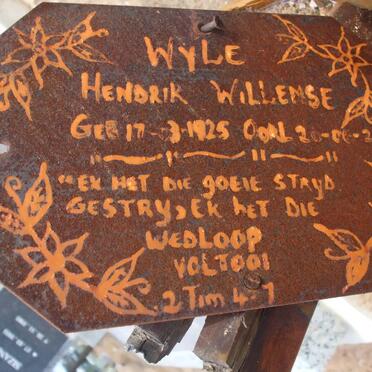 WYLE
HENDRIK WILLEMSE
GEB 17-03-1925 OORL
"EK HET DIE GOEIE STRYD
GESTRY, EK HET DIE
WEDLOOP
VOLTOOI
2 Tim 4-7